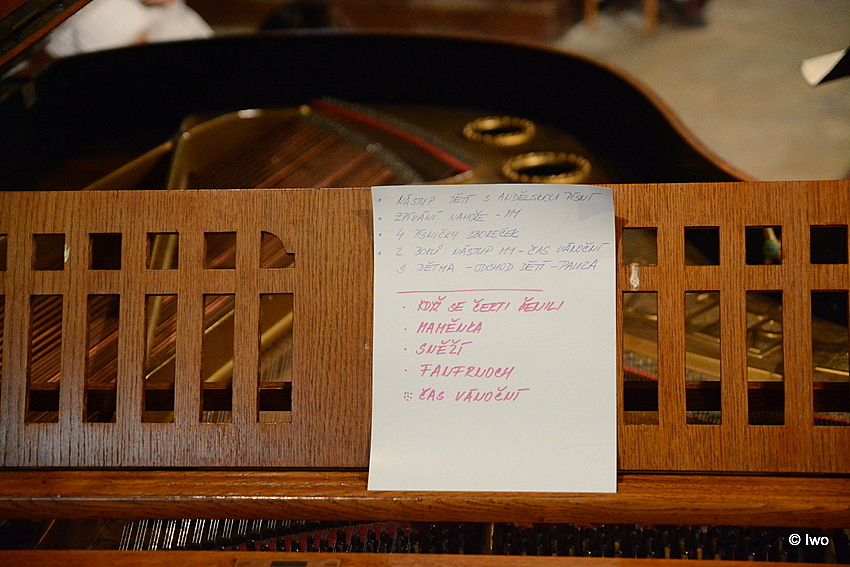 • NÁSTUP DĚTÍ S ANDĚLSKOU PÍSNÍ
• ZPÍVÁNÍ NAHOŘE - MM
• 4 PÍSNIČKY SBOREČEK
• Z BOKŮ NÁSTUP MM - ČAS VÁNOČNÍ
S DĚTMA - ODCHOD DĚTÍ - PAUZA
· KDYŽ SE ČERTI ŽENILI
· MAMĚNKA
· SNĚŽÍ
· FANFRNOCH
ČAS VÁNOČNÍ
© Iwo